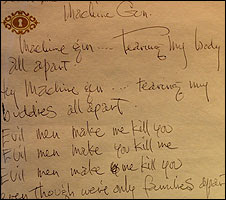 Machine Gun.
1
Machine gun .... Tearing My body
all apart
Hey Machine gun ... tearing my
buddies all apart.
Evil men make me kill you
Evil men make you kill me
Evil men make me kill you
Even though we're only families apart